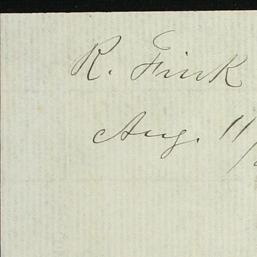 R. Fink
Aug. 11/